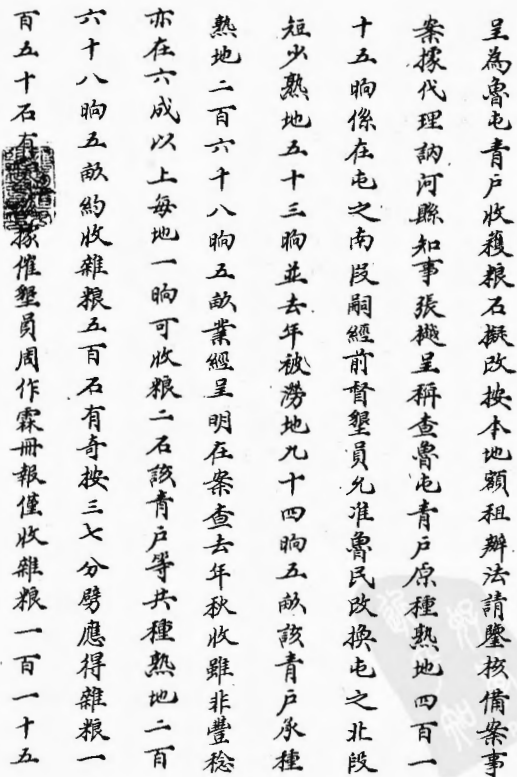 呈為魯屯青戶收穫粮石擬改按本地額租辦法請鑒核備案事
案據代理訥河縣知事張樾呈稱查魯屯青戶原種熟地四百一
十五晌係在屯之南段嗣經前督墾員允准魯民改換屯之北段
短少熟地五十三晌並去年被澇地九十四晌五畝該青戶承種
熟地二百六十八晌五畝業經呈明在案查去年秋收雖非豐稔
亦在六成以上每地一晌可收粮二石該青戶等共種熟地二百
六十八晌五畝約收雜粮五百石有奇按三七分劈應得雜粮一
百五十石有據催墾員周作霖冊報僅收雜粮一百一十五